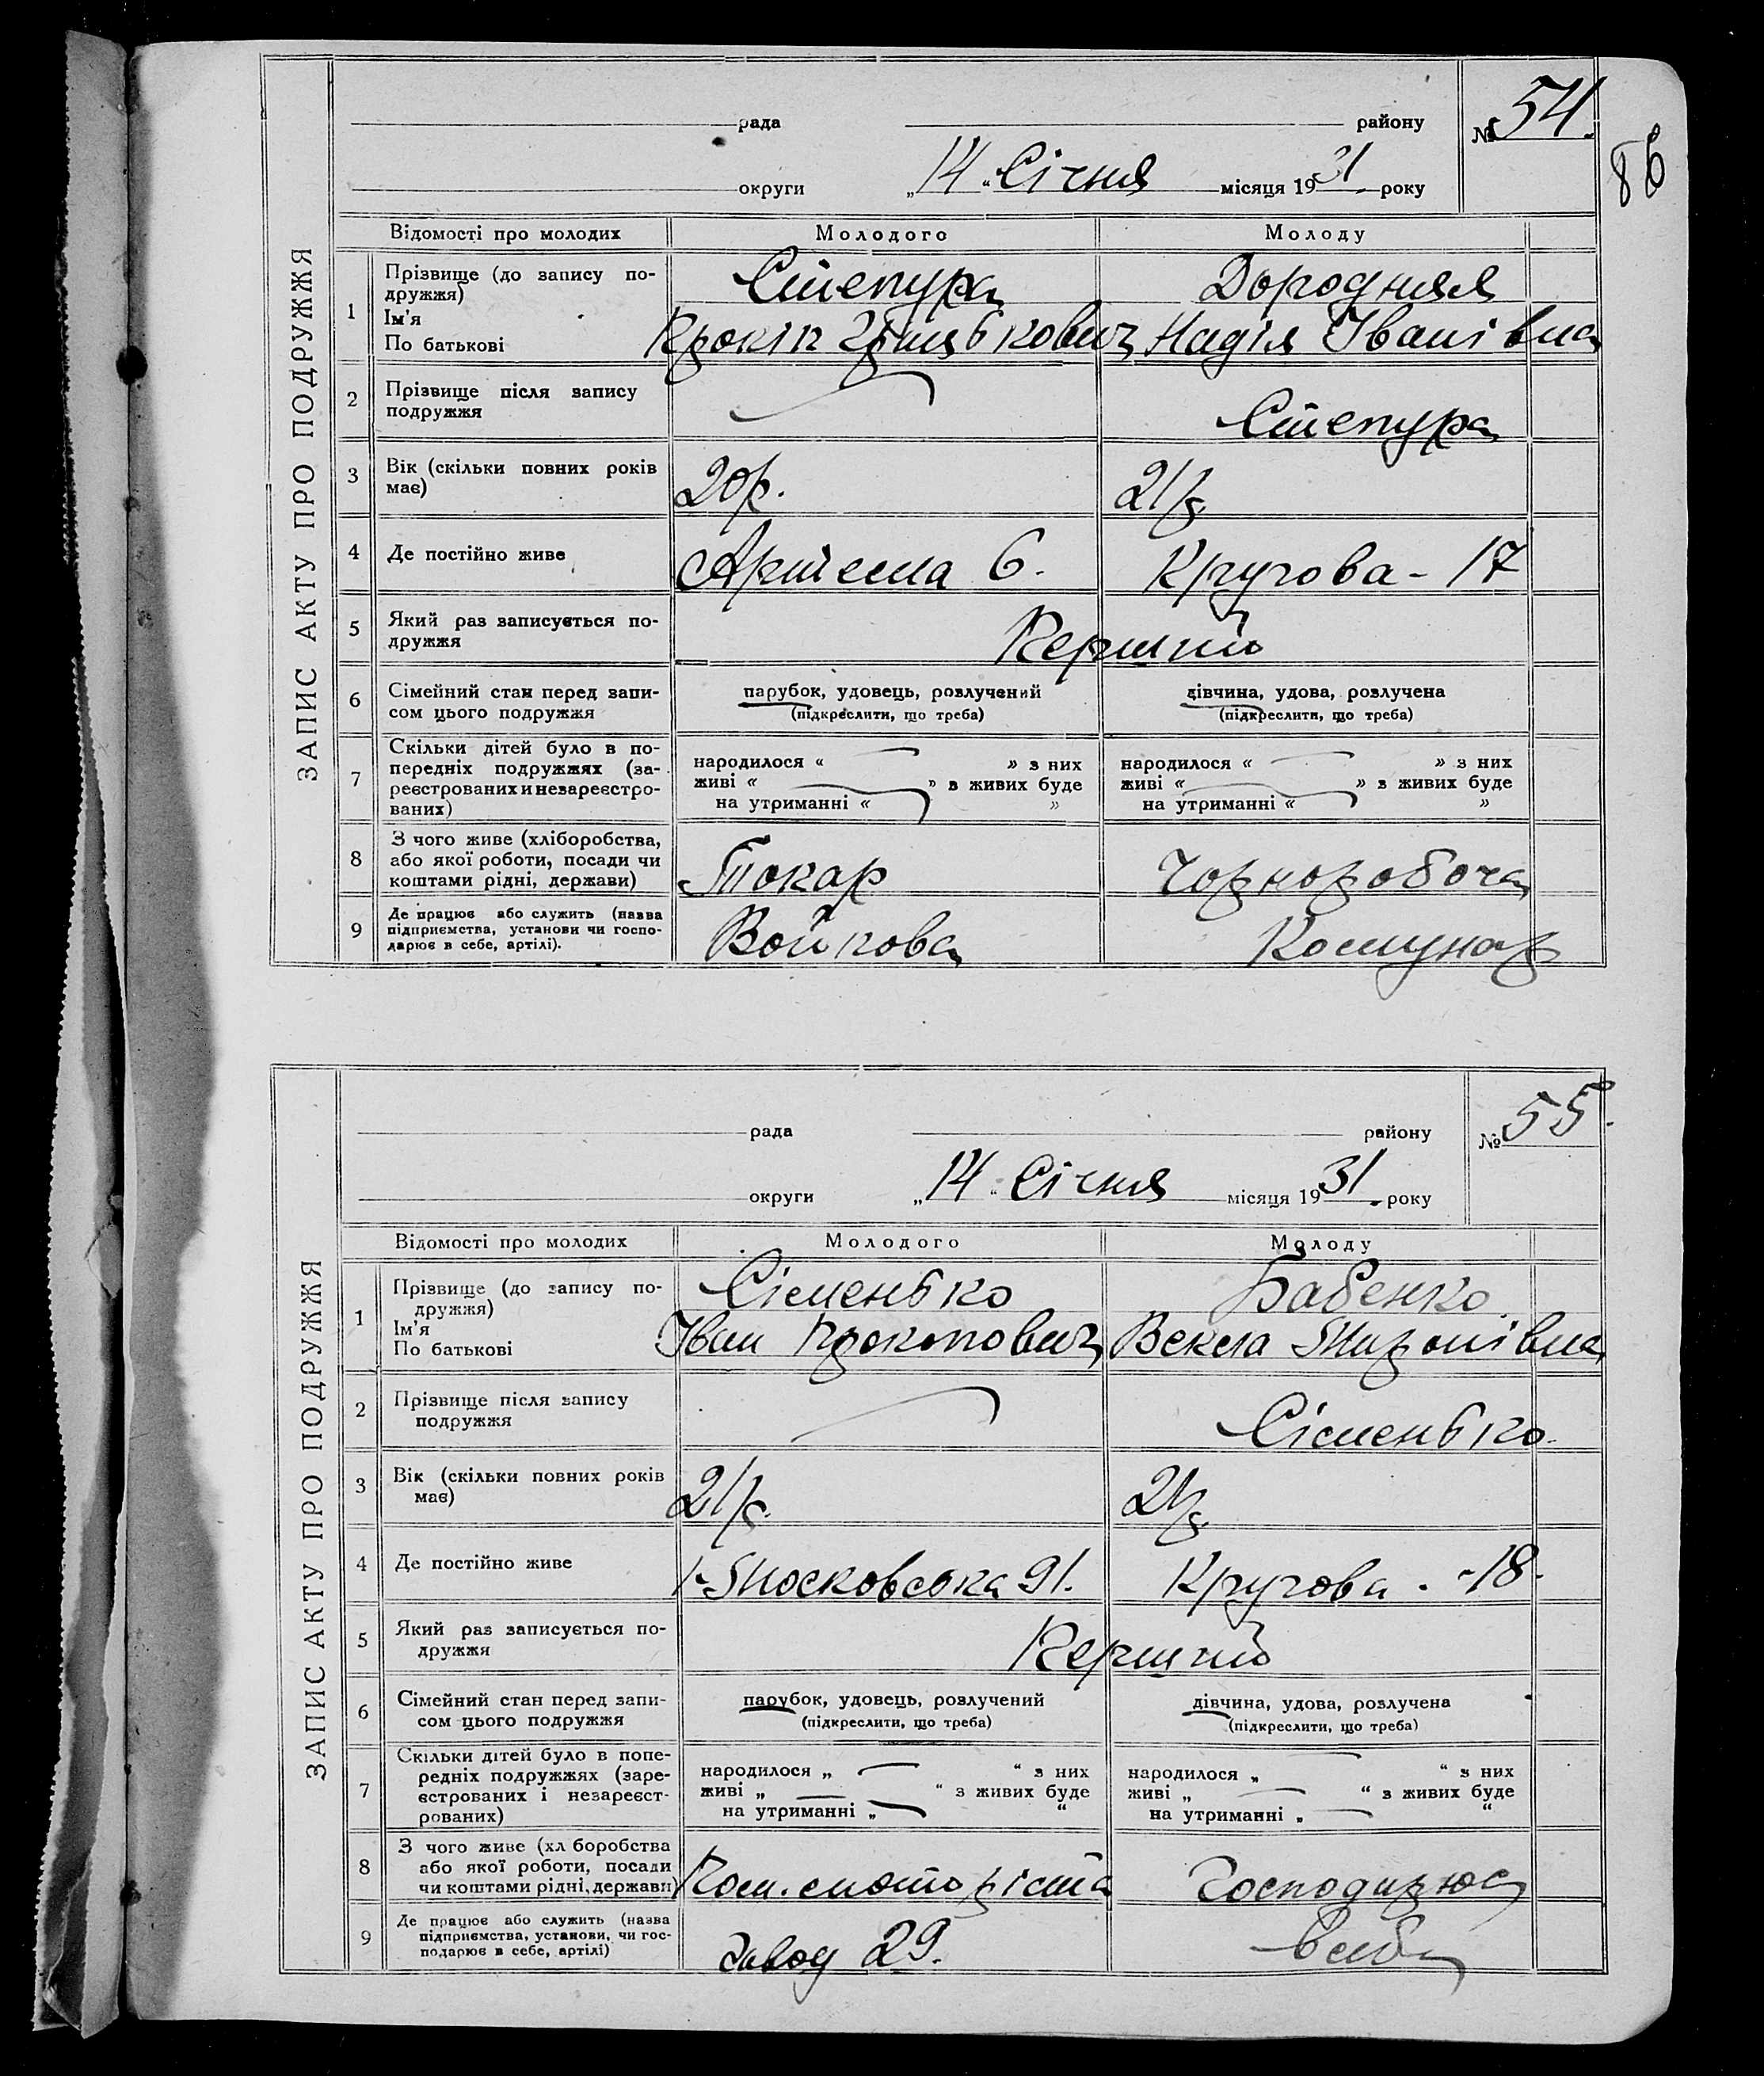 ЗАПИС АКТУ ПРО ПОДРУЖЖЯ
рада району № 54.
86
округи „14“ Січня місяця 1931 року
Відомості про молодих Молодого Молоду
1 Прізвище (до запису подружжя) Степура Дородняя
Ім'я
По батькові Прокіп Надія Іванівна
2 Прізвище після запису
подружжя Степура
3 Вік (скільки повних років
має) 20 р. 21 р.
4 Де постійно живе Артема 6. Кругова - 17
5 Який раз записується по-
дружжя Перший
6 Сімейний стан перед запи-
сом цього подружжя
парубок, удовець, розлучений
(підкреслити, що треба)
дівчина, удова, розлучена
(підкреслити, що треба)
7 Скільки дітей було в по-
передніх подружжях (за-
реєстрованих и незареєстро-
ваних)
народилося « » з них
живі « » в живих буде
на утриманні « »
народилося « » з них
живі « » з живих буде
на утриманні « »
8 З чого живе (хліборобства,
або якої роботи, посади чи
коштами рідні, держави) Токар Чорноробоча
9 Де працює або служить (назва
підприємства, установи чи госпо-
дарює в себе, артілі). Войкова Комунар
ЗАПИС АКТУ ПРО ПОДРУЖЖЯ
рада району № 55.
округи „14“ Січня місяця 1931 року
Відомості про молодих Молодого Молоду
1 Прізвище (до запису по-
дружжя) Сіменько Бабенко
Ім'я
По батькові Іван Прокопович Векла Миронівна
2 Прізвище після запису
подружжя Сіменько
3 Вік (скільки повних років
має) 21 р. 21 р.
4 Де постійно живе 1-Московська 91. Кругова - 18.
5 Який раз записується по-
дружжя Перший
6 Сімейний стан перед запи-
сом цього подружжя
парубок, удовець, розлучений
(підкреслити, що треба)
дівчина, удова, розлучена
(підкреслити, що треба)
7 Скільки дітей було в попе-
редніх подружжях (заре-
єстрованих і незареєст-
рованих)
народилося „ “ з них
живі „ “ з живих буде
на утриманні „ “
народилося „ “ з них
живі „ “ з живих буде
на утриманні „ “
8 З чого живе (хл боробства
або якої роботи, посади
чи коштами рідні, держави) Пом. моторіста Господарює
9 Де працює або служить (назва
підприємства, установи, чи гос-
подарює в себе, артілі) Завод 29. в себе